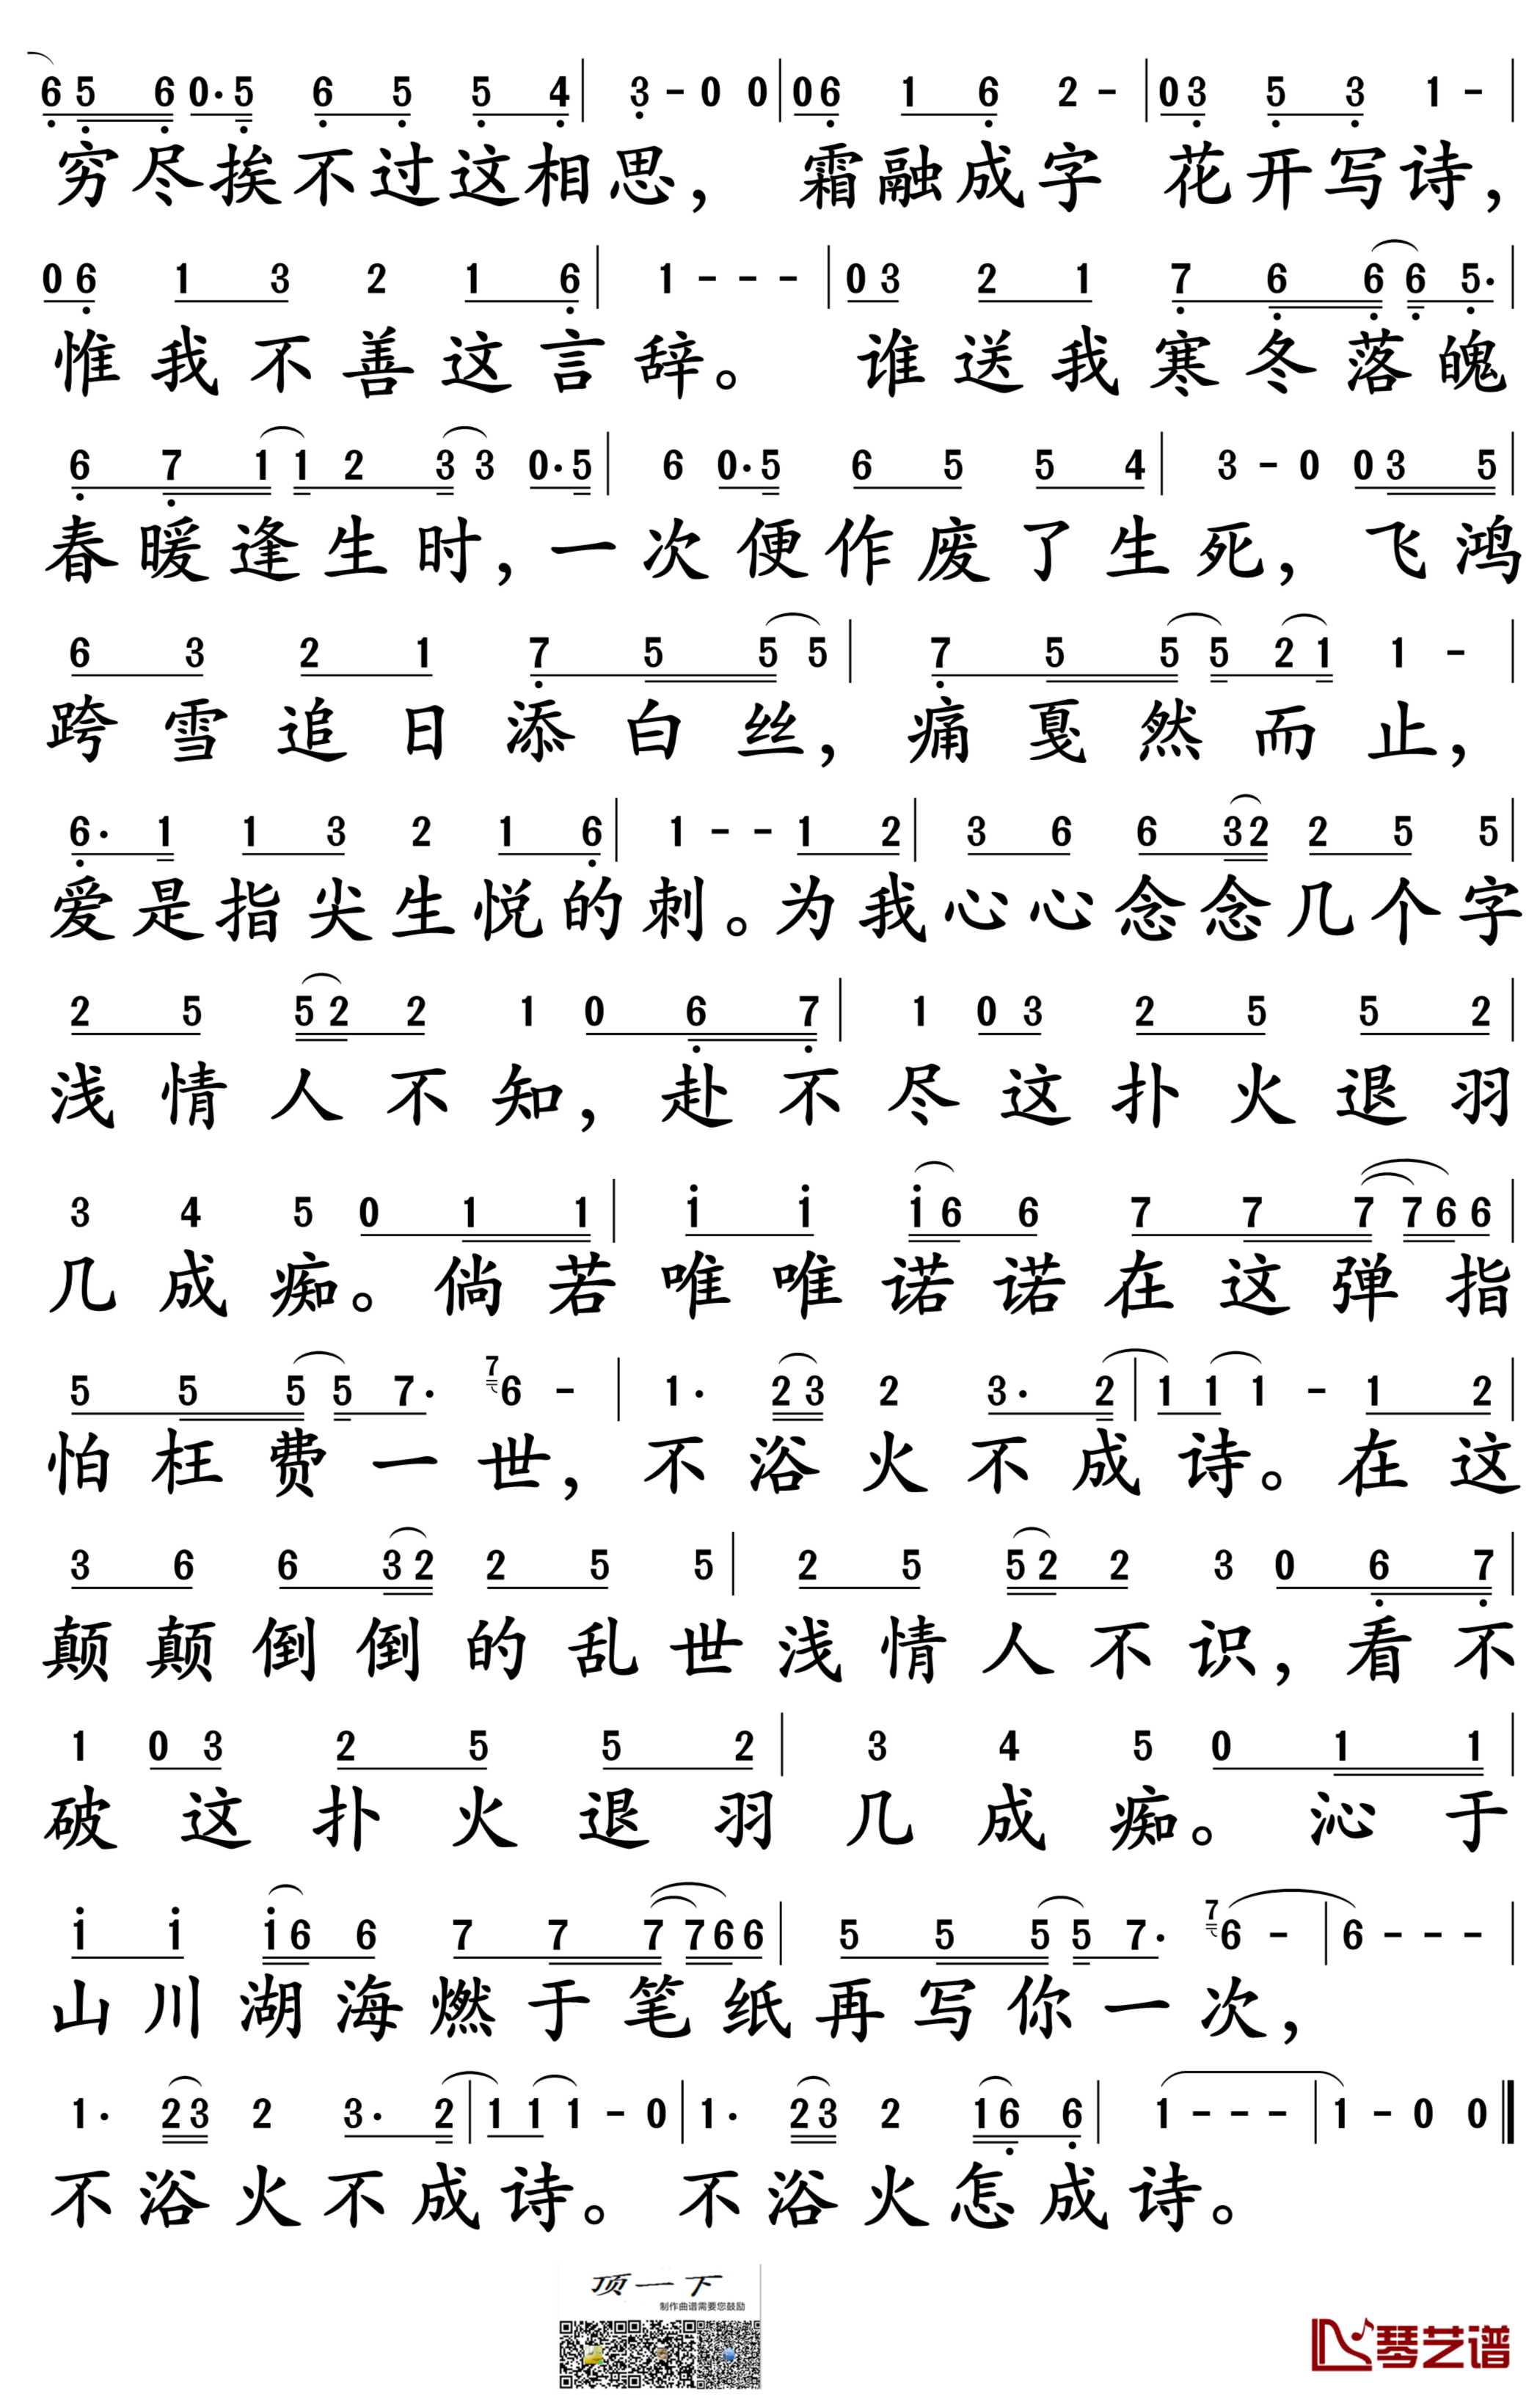 6 5 6 0·5 6 5 5 4 | 3 - 0 0 | 0 6 1 6 2 - | 0 3 5 3 1 - |
穷尽挨不过这相思，霜融成字 花开写诗，
0 6 1 3 2 1 6 | 1 - - - | 0 3 2 1 7 6 6 6 5· |
惟我不善这言辞。谁送我寒冬落魄
6 7 1 1 2 3 3 0·5 | 6 0·5 6 5 5 4 | 3 - 0 0 3 5 |
春暖逢生时，一次便作废了生死，飞鸿
6 3 2 1 7 5 5 5 | 7 5 5 5 2 1 1 - |
跨雪追日添白丝，痛戛然而止，
6· 1 1 3 2 1 6 | 1 - - 1 2 | 3 6 6 3 2 2 5 5 |
爱是指尖生悦的刺。为我心心念念几个字
2 5 5 2 2 1 0 6 7 | 1 0 3 2 5 5 2 |
浅情人不知，赴不尽这扑火退羽
3 4 5 0 1 1 | i i i 6 6 7 7 7 7 6 6 |
几成痴。倘若唯唯诺诺在这弹指
5 5 5 5 7· 7 6 - | 1· 2 3 2 3· 2 | 1 1 1 - 1 2 |
怕枉费一世，不浴火不成诗。在这
3 6 6 3 2 2 5 5 | 2 5 5 2 2 3 0 6 7 |
颠颠倒倒的乱世浅情人不识，看不
1 0 3 2 5 5 2 | 3 4 5 0 1 1 |
破这扑火退羽几成痴。沁于
i i i 6 6 7 7 7 7 6 6 | 5 5 5 5 7· 7 6 - | 6 - - - |
山川湖海燃于笔纸再写你一次，
1· 2 3 2 3· 2 | 1 1 1 - 0 | 1· 2 3 2 1 6 6 | 1 - - - | 1 - 0 0 ‖
不浴火不成诗。不浴火怎成诗。
顶一下
制作曲谱需要您鼓励
琴艺谱